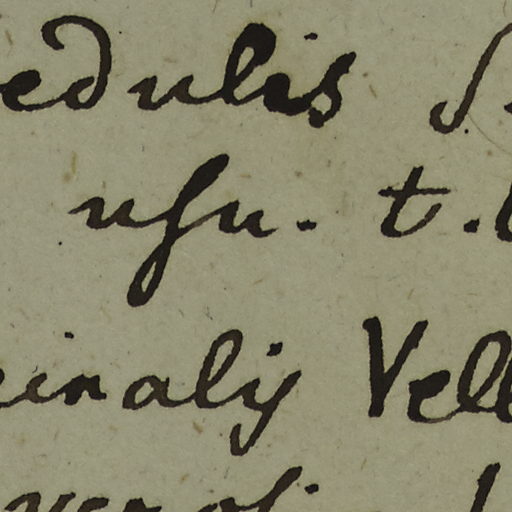 edulis S
usu. t.
inalij Vell